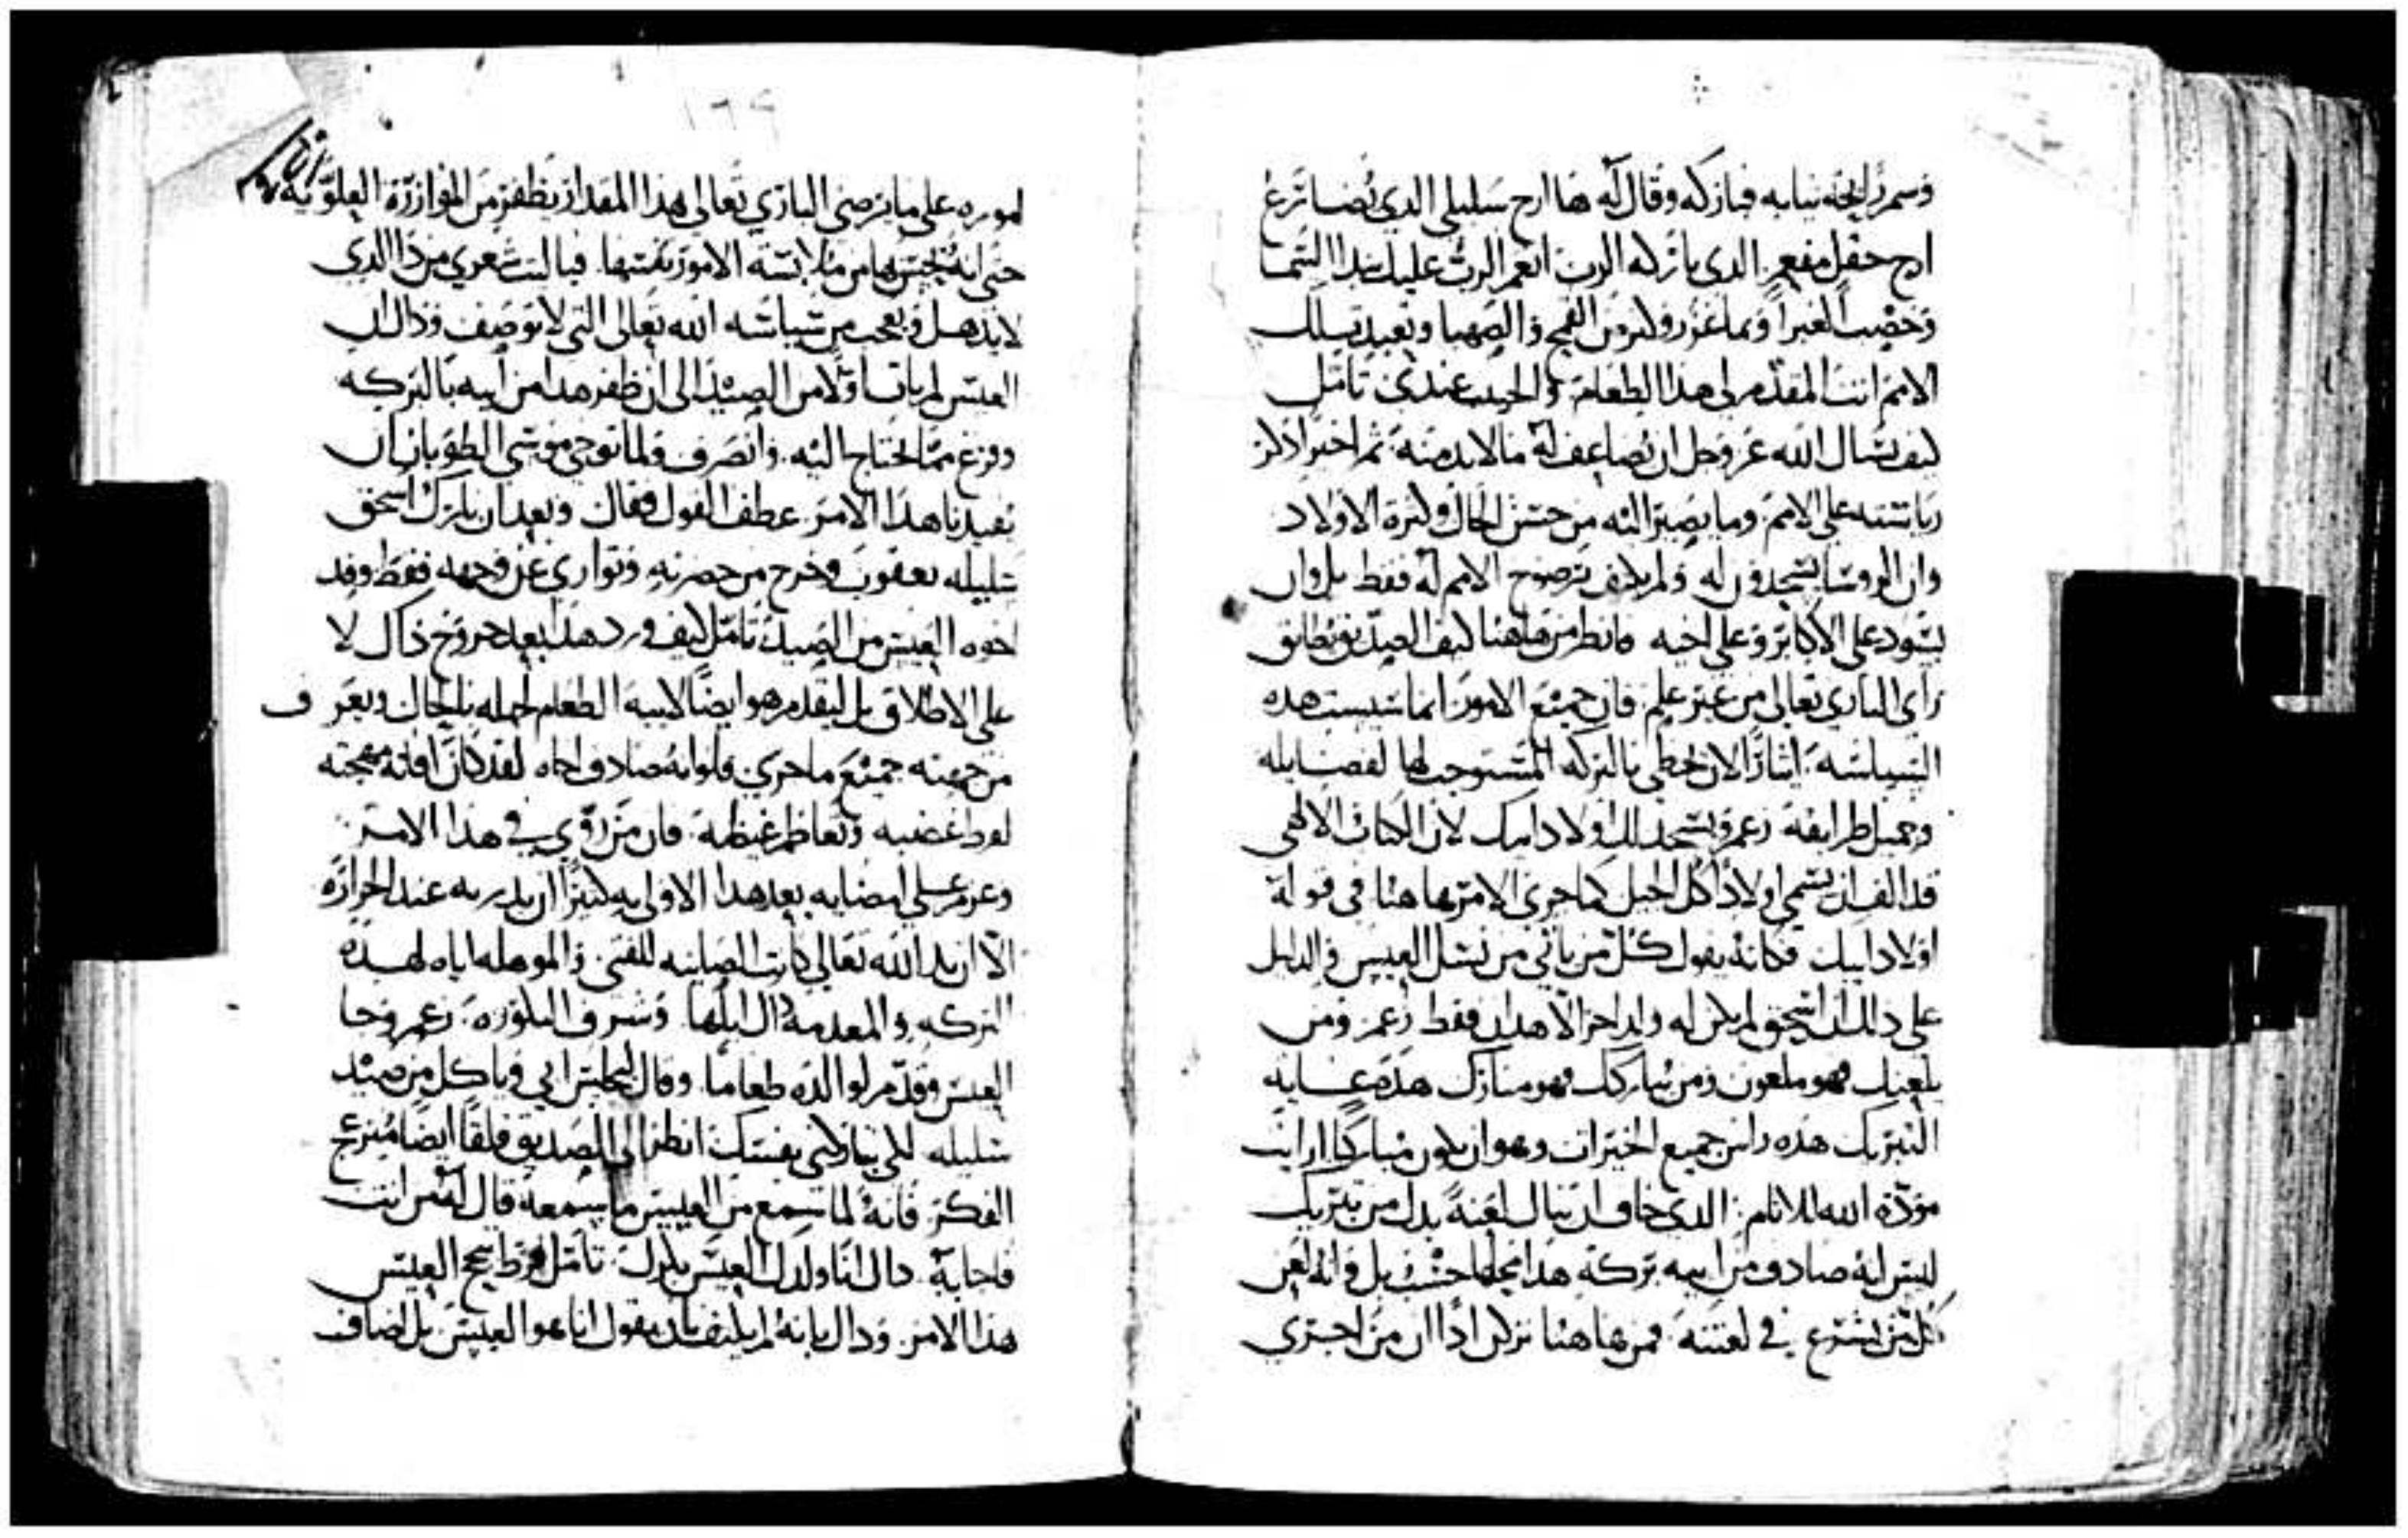 وسم رايحة ثيابه فباركه وقال له ها ارج سليلي الذي يُضارع
ارج حقل مفعم الذي باركه الرب انعم الرب عليك بندا السَّما
وخصب الغبرا وبما غزر وكثر من القمح والصهبا وتعبد لك
الامم انت المقدم لي هذا الطعام والحبيب عندي تامّل
كيف سال الله عز وجل ان يُضاعف له ما لا بد منه ثم اخيرا ذكر
رياسته على الامم وما يصير اليه من حسن الحال وكثرة الاولاد
وان الروسا يسجدون له ولم يكتف برضوخ الامم له فقط بل وان
يسود على الاكابر وعلى اخيه فانظر من هاهنا كيف الصدّيق يُطابق
راي الباري تعالى من غير علم فان جميع الامور انما سيست هذه
السياسة ايثارًا لان يحظى بالبركة المستوجب لها لفضايله
وجميل طرايقه زعم ويسجد لك اولاد ابيك لان الكتاب الالهي
قد الف ان يسمي اولادًا كل الجيل كما جرى الامر هاهنا في قوله
اولاد ابيك فكانه يقول كل من ياتي من نسل العيس والدليل
على ذلك ان اسحق لم يكن له ولد اخر الا هذان فقط زعم ومن
يلعنك فهو ملعون ومن يباركك فهو مبارك هذه غاية
التبريك هذه راس جميع الخيرات وهو ان يكون مباركًا ارايت
مودة الله للانام الذي خاف ان ينال لعنة بدل من تبريك
ليس انه صادف من ابيه بركة هذا محلها حسب بل وانه لعن
كل من يشرع في لعنته فمن هاهنا نزكن اذًا ان من اجترى
١٦٩
اموره على ما يرضي الباري تعالى هذا المقدار يظفر من الموازرة العلوية
حتى انه يحتس بها من ملابسة الامور نفسها فيا ليت شعري من ذا الذي
لا يذهل ويعجب من سياسة الله تعالى التي لا توصف وذاك ان
العيس لم يات اوّلا من الصيد الى ان ظفر هذا من ابيه بالبركة
وفرغ مما يحتاج اليه وانصرف ولما توخى موسى الطوباني ان
يفيدنا هذا الامر عطف القول فقال وبعد ان بارك اسحق
سليله يعقوب وخرج من حضرته وتوارى عن وجهه فقط وفد
اخوه العيس من الصيد تامّل كيف ورد هذا بعد خروج ذاك لا
على الاطلاق بل ليقدم هو ايضًا لابيه الطعام لجهله بالحال ويعرف
من جهته جميع ما جرى فلو انه صادف اخاه لقد كان افاته مهجته
لفرط غضبه وتعاظم غيظه فان من روّي في هذا الامر
وعزم على امضايه بعد هذا الاولى به كثيرًا ان يدربه عند الحرارة
الا ان يد الله تعالى كانت الصاينة للفتى والموهلة اياه لهذه
البركة والمعدمة ذاك ايّاها وشرف البكورة زعم وجا
العيس وقدّم لوالده طعامًا وقال ليجلس ابي وياكل من صيد
سليله لكي تباركني نفسك انظر الى الصديق قلقًا ايضًا مُنزعج
الفكر فانه لما سمع من العيس ما سمعه قال له من انت
فاجابه قال انا ولدك العيس بكرك تامل فرط تبجح العيس
هذا الامر وذاك بانه لم يكتف بان يقول انا هو العيس بل اضاف